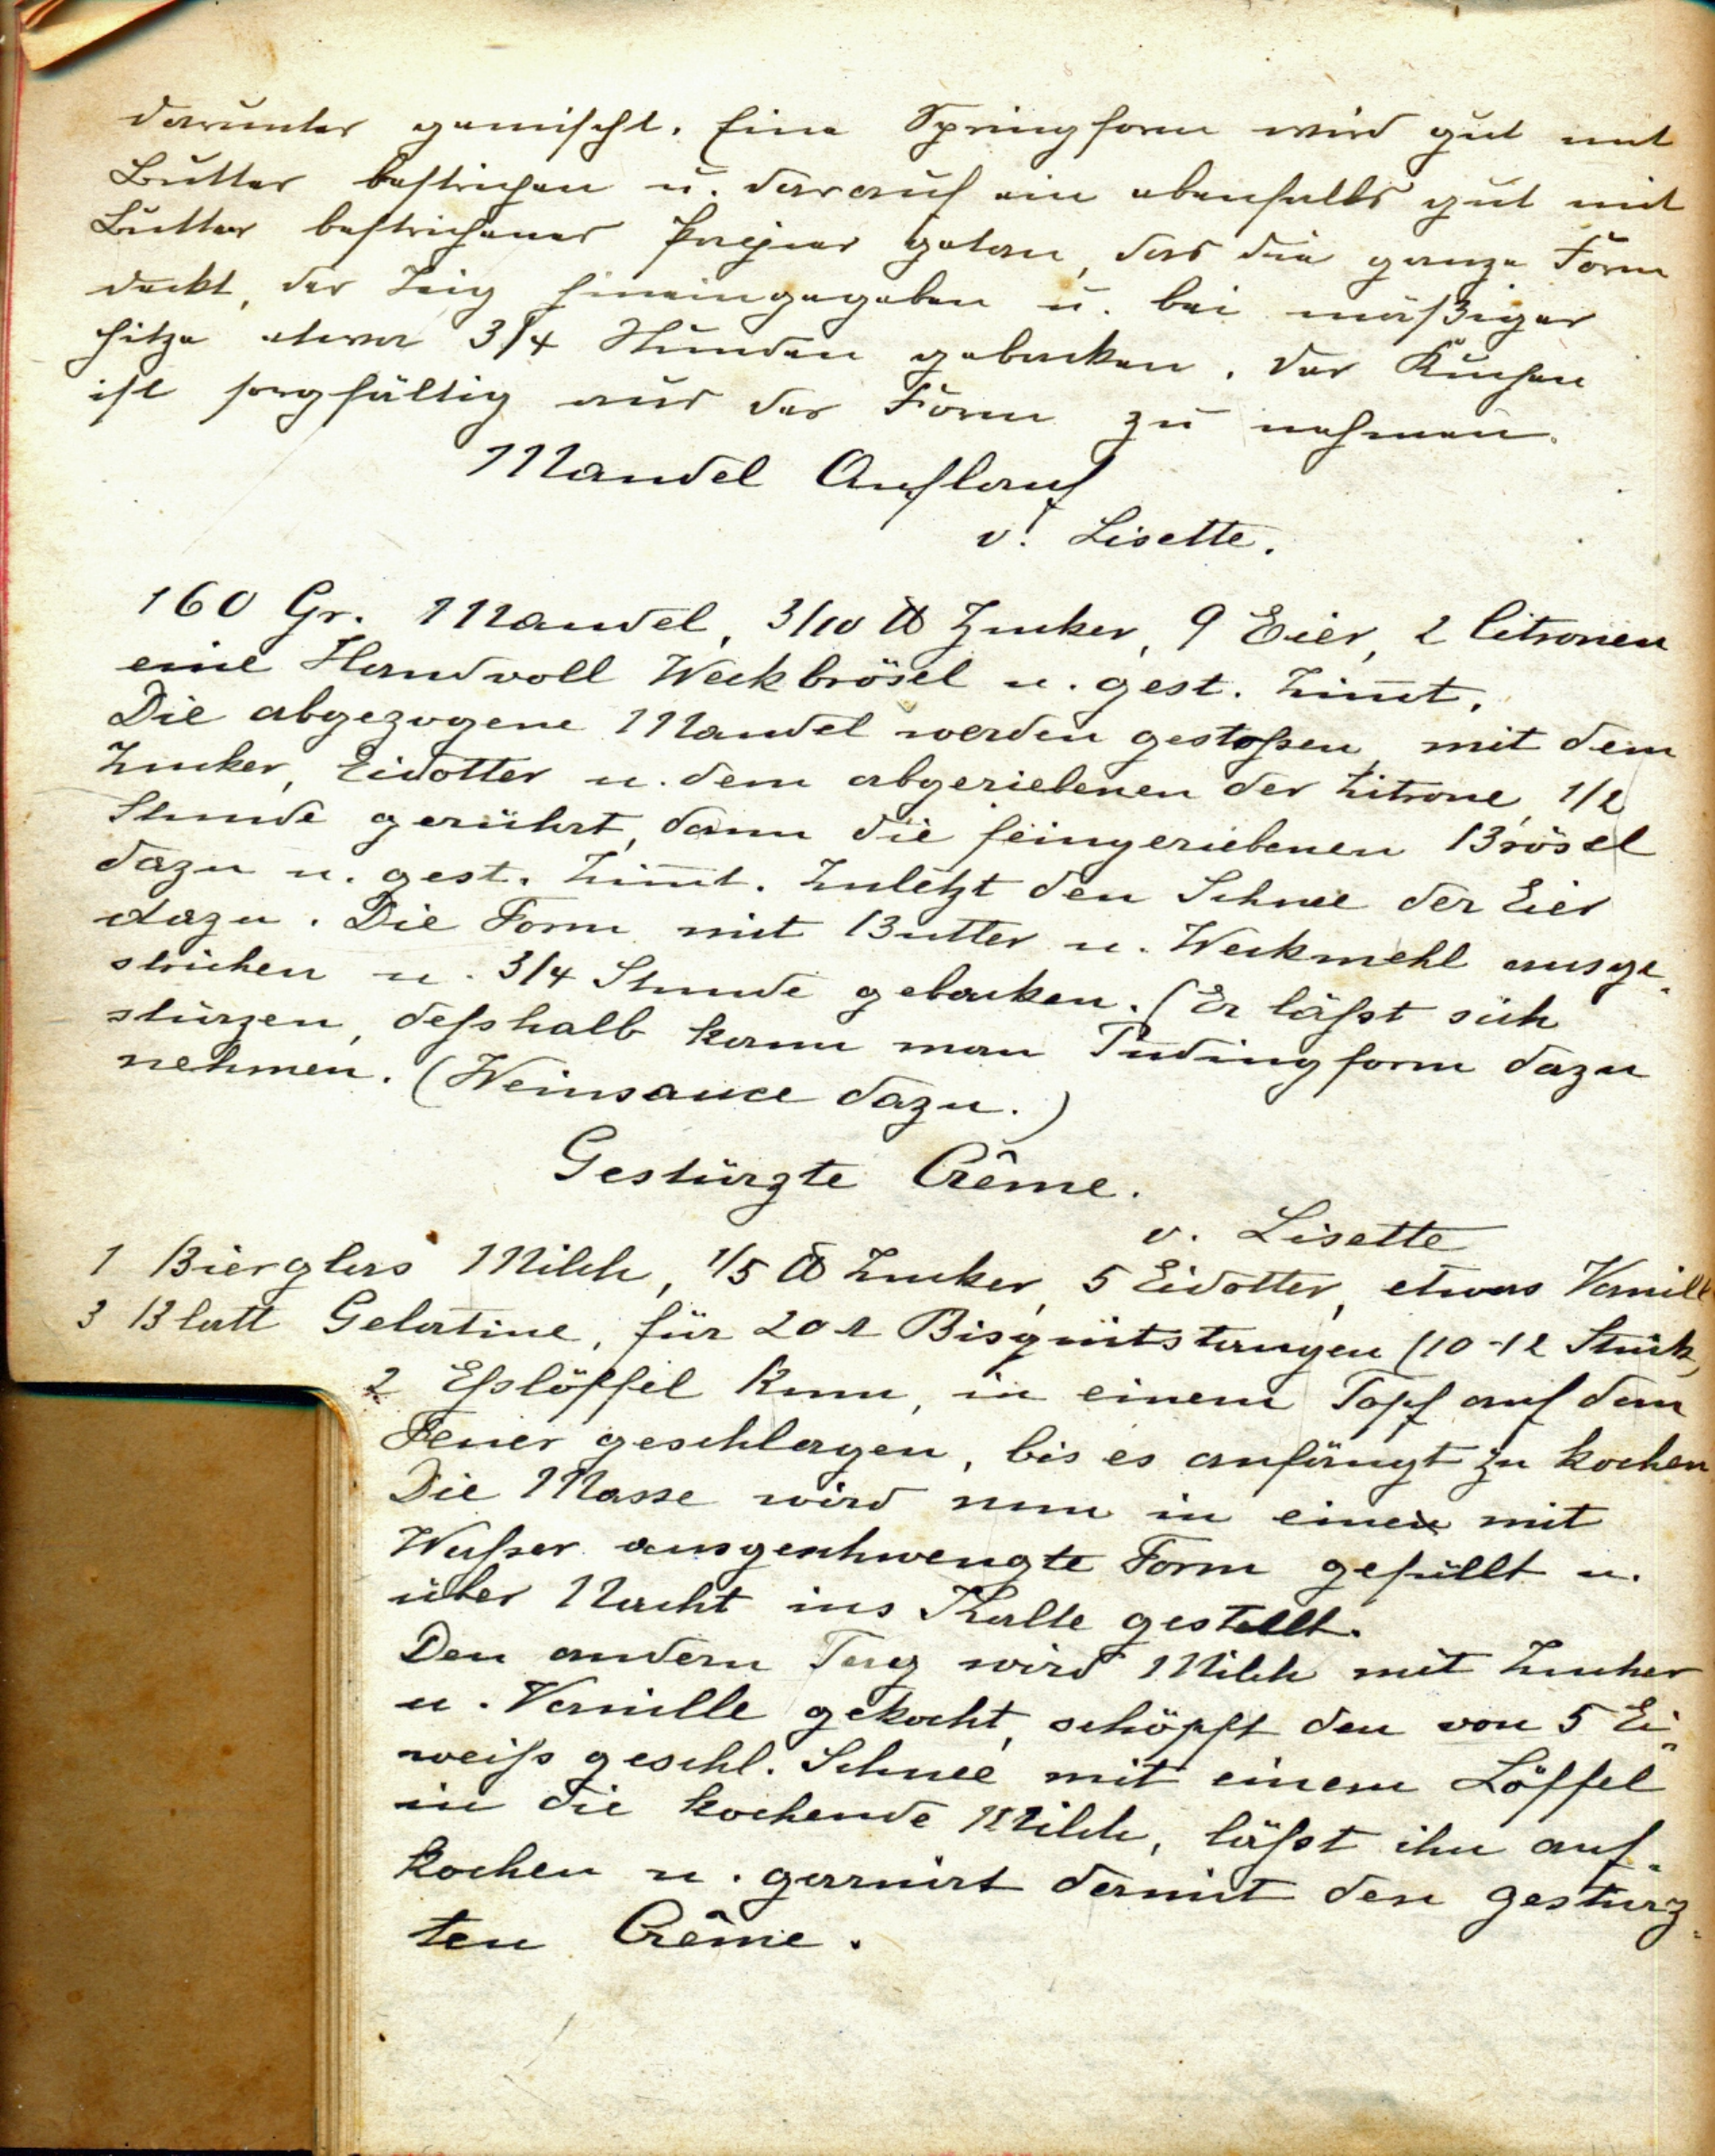 darunter gemischt. Eine Springform wird gut mit
Butter bestrichen u. darauf ein ebenfalls gut mit
Butter bestrichenes Papier getan, das die ganze Form
deckt, der Teig hineingegeben u. bei mäßiger
Hitze etwa 3/4 Stunden gebacken. Der Kuchen
ist sorgfältig aus der Form zu nehmen.
Mandel Auflauf
v. Lisette.
160 Gr. Mandel, 3/10 ℔ Zucker, 9 Eier, 2 Citronen
eine Handvoll Weckbrösel u. gest. Zim̄t.
Die abgezogene Mandel werden gestoßen, mit dem
Zucker, Eidotter u. dem abgeriebenen der Zitrone, 1/2
Stunde gerührt, dann die feingeriebenen Brösel
dazu u. gest. Zim̄t. Zuletzt den Schnee der Eier
dazu. Die Form mit Butter u. Weckmehl ausge-
strichen u. 3/4 Stunde gebacken. (Er läßt sich
stürzen, deßhalb kann man Pudingform dazu
nehmen. (Weinsauce dazu.)
Gestürzte Crême.
v. Lisette
1 Bierglas Milch, 1/5 ℔ Zucker, 5 Eidotter, etwas Vanill
3 Blatt Gelatine, für 20 Bisquitstangen (10-12 Stück,
2 Eßlöffel Rum, in einem Topf auf dem
Feuer geschlagen, bis es anfängt zu kochen
Die Masse wird nun in eine mit
Waßer ausgeschwengte Form gefüllt u.
über Nacht ins Kalte gestellt.
Den andern Tag wird Milch mit Zucker
u. Vanille gekocht, schöpft den von 5 Ei-
weiß geschl. Schnee mit einem Löffel
in die kochende Milch, läßt ihn auf-
kochen u. garnirt damit den gestürz-
ten Crême.